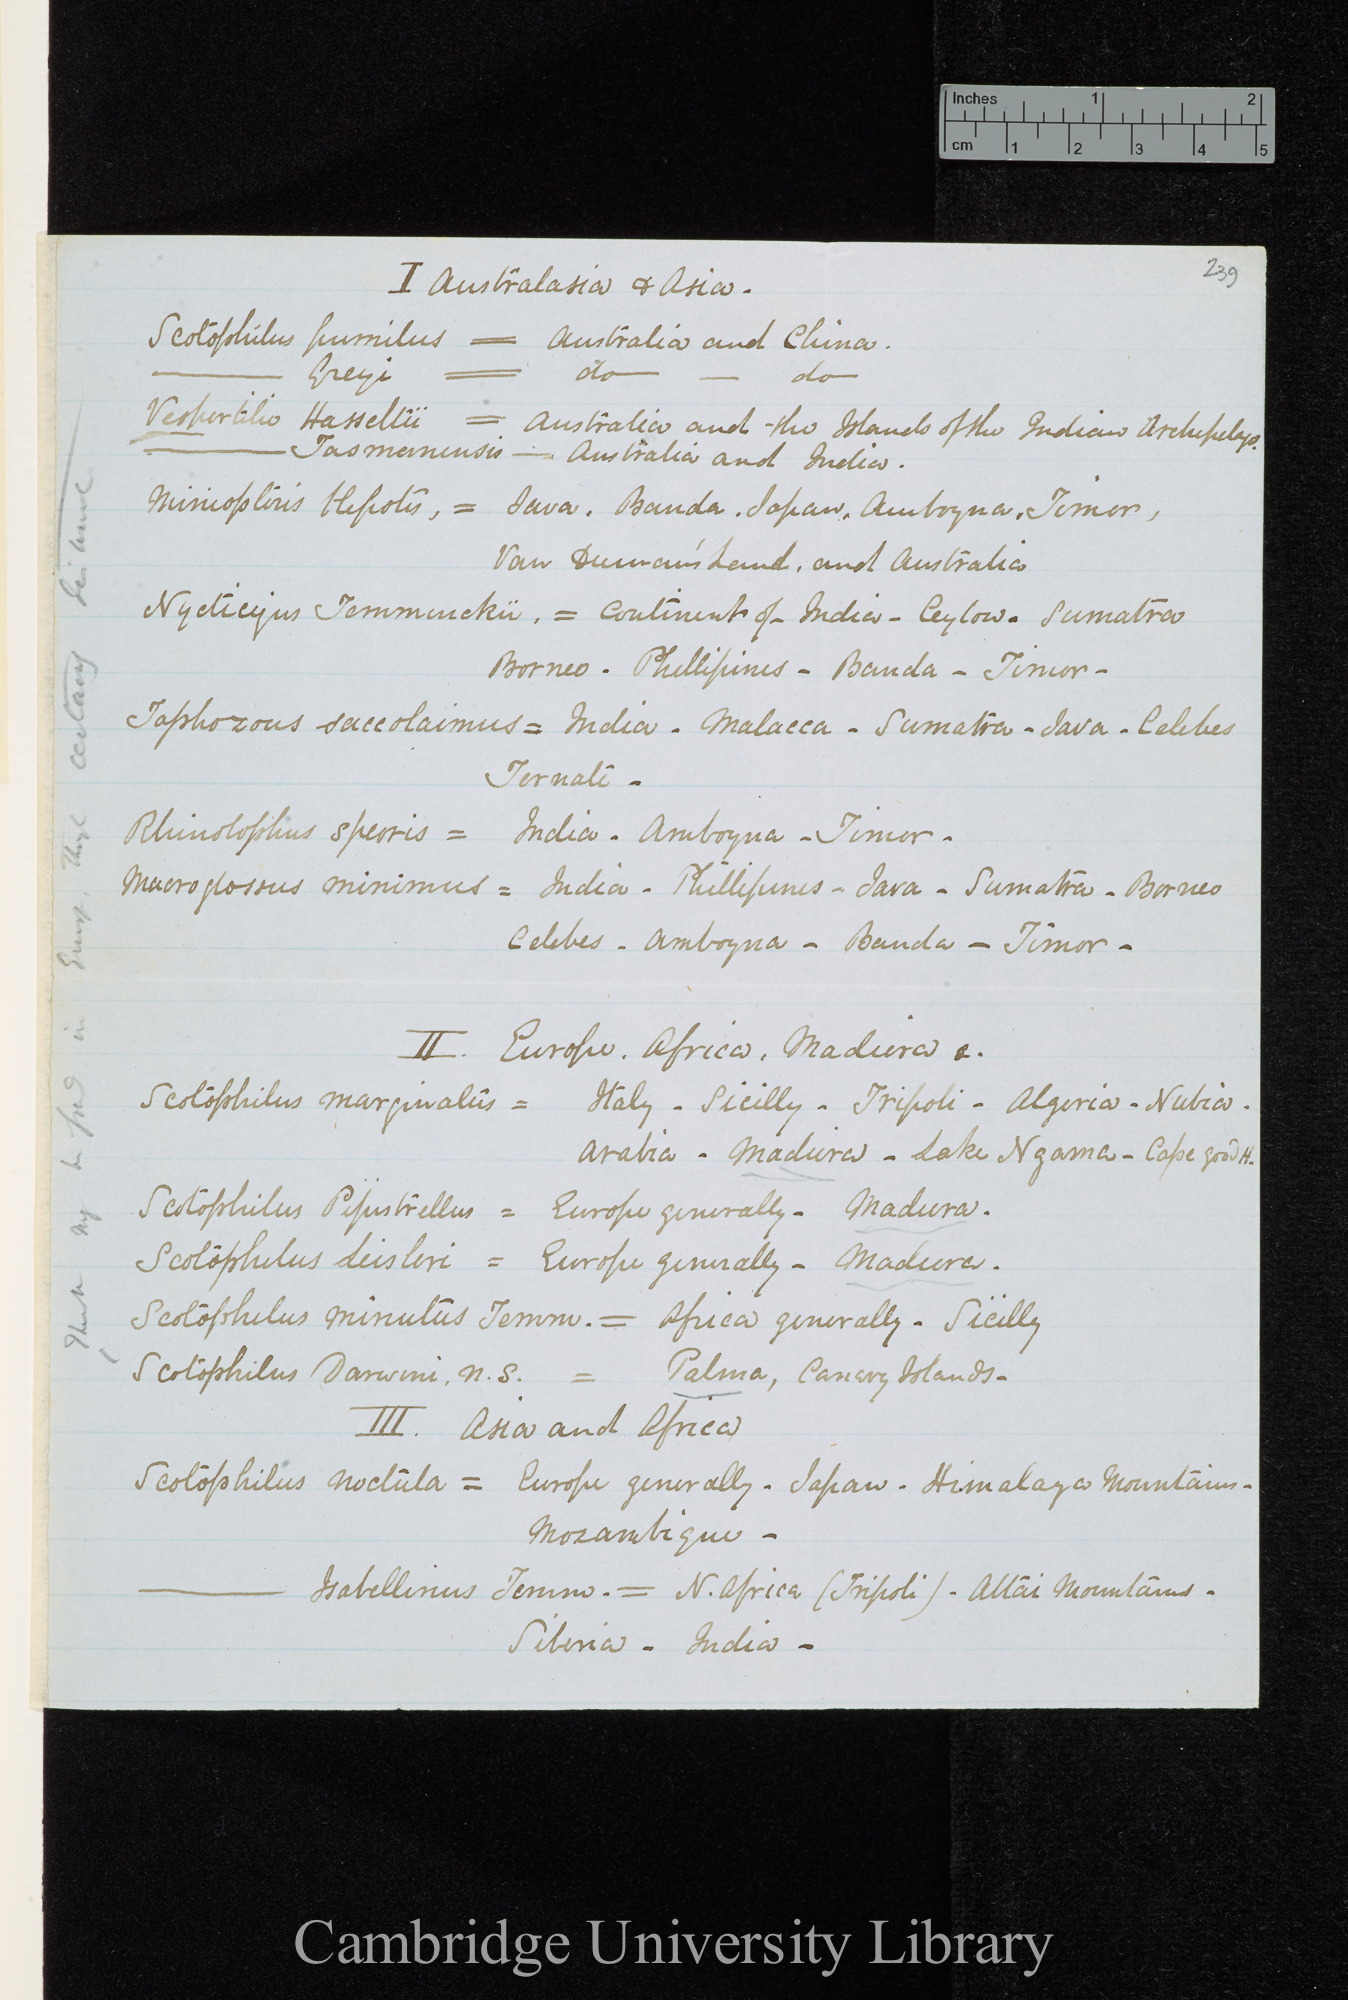 Inches 1 2
cm 1 2 3 4 5
239
I Australasia & Asia.
Scotophilus pumilus = Australia and China.
——— Greyi = do — do
Vespertilio Hasseltii = Australia and the Islands of the Indian Archipelago.
——— Tasmanensis — Australia and India.
Java. Banda. Japan. Amboyna. Timor,
Van Diuman's Land, and Australia
Nycticejus Temminckii. = Continent of India - Ceylon. Sumatra
Borneo - Phillipines - Banda - Timor -
Taphozous saccolaimus = India - Malacca - Sumatra - Java - Celebes
Ternate -
Rhinolophus speoris = India - Amboyna - Timor -
Macroglossus minimus = India - Phillipines - Java - Sumatra - Borneo
Celebes - Amboyna - Banda - Timor -
II. Europe. Africa. Madiera
Scotophilus marginatus = Italy - Sicilly - Tripoli - Algeria - Nubia -
Arabia - Madiera - Lake Ngama - Cape good H.
Scotophilus Pipistrellus = Europe generally - Madiera.
Scotophilus Leisleri = Europe generally - Madiera.
Scotophilus minutus Temm. = Africa generally - Sicilly
Scotophilus Darwini. n.s. = Palma, Canary Islands -
III. Asia and Africa
Scotophilus noctula = Europe generally - Japan - Himalaya Mountains -
Mozambique -
——— Isabellinus Temm. = N. Africa (Tripoli) - Altai Mountains -
Siberia - India -
in Europe
Cambridge University Library